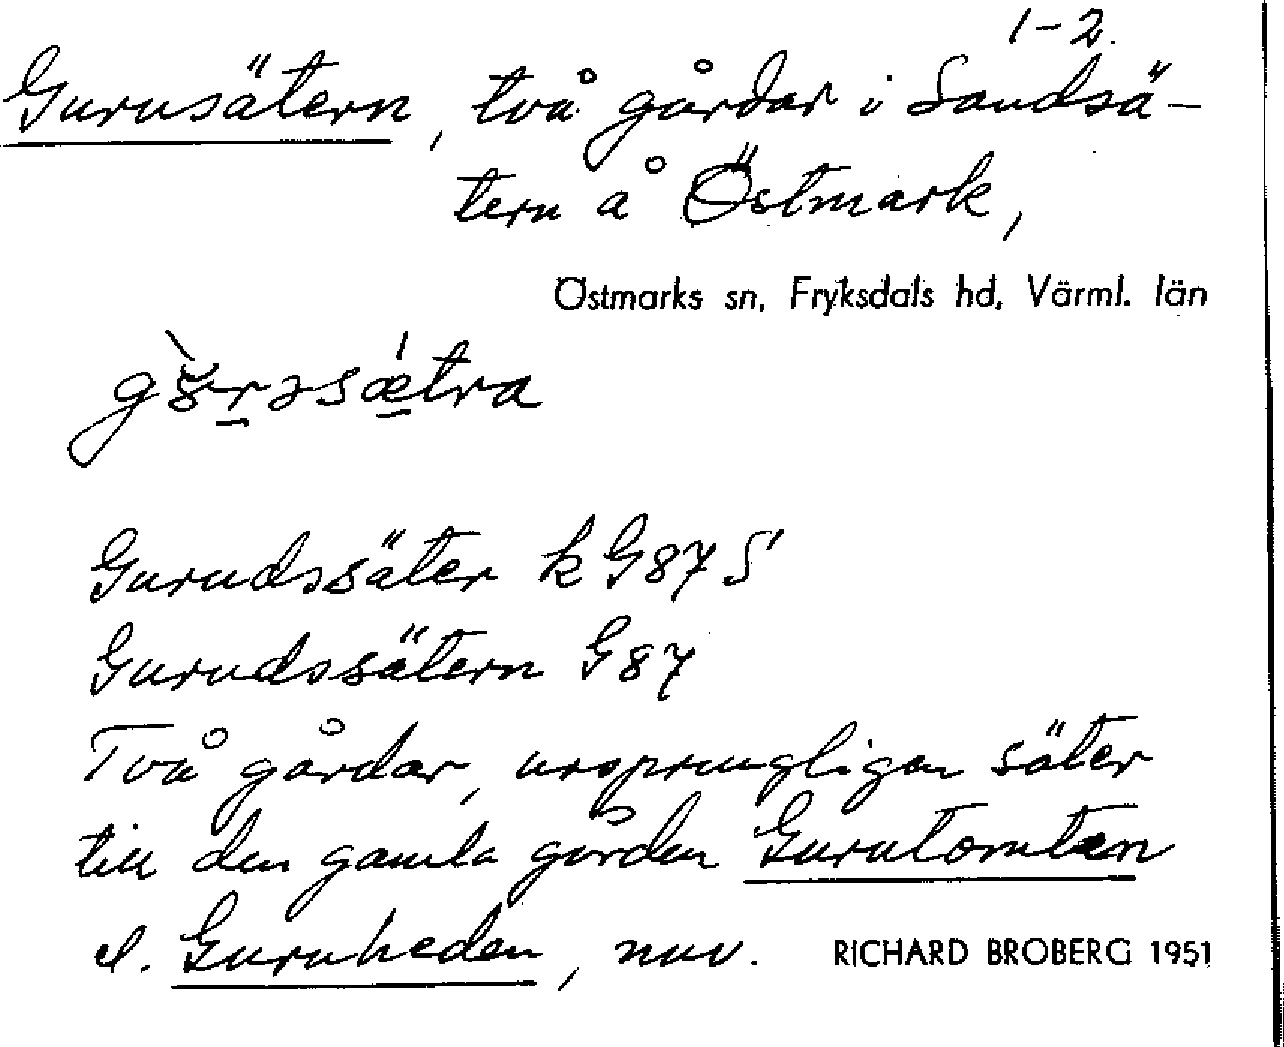 1-2.
Gurusätern, två gårdar i Sandsä-
tern å Östmark,
Östmarks sn, Fryksdals hd, Värml. län
Gurudssäter k G87 S
Gurudssätern G87
Två gårdar, ursprungligen säter
till den gamla gården Gurutomten
el. Guruheden, nuv. RICHARD BROBERG 1951